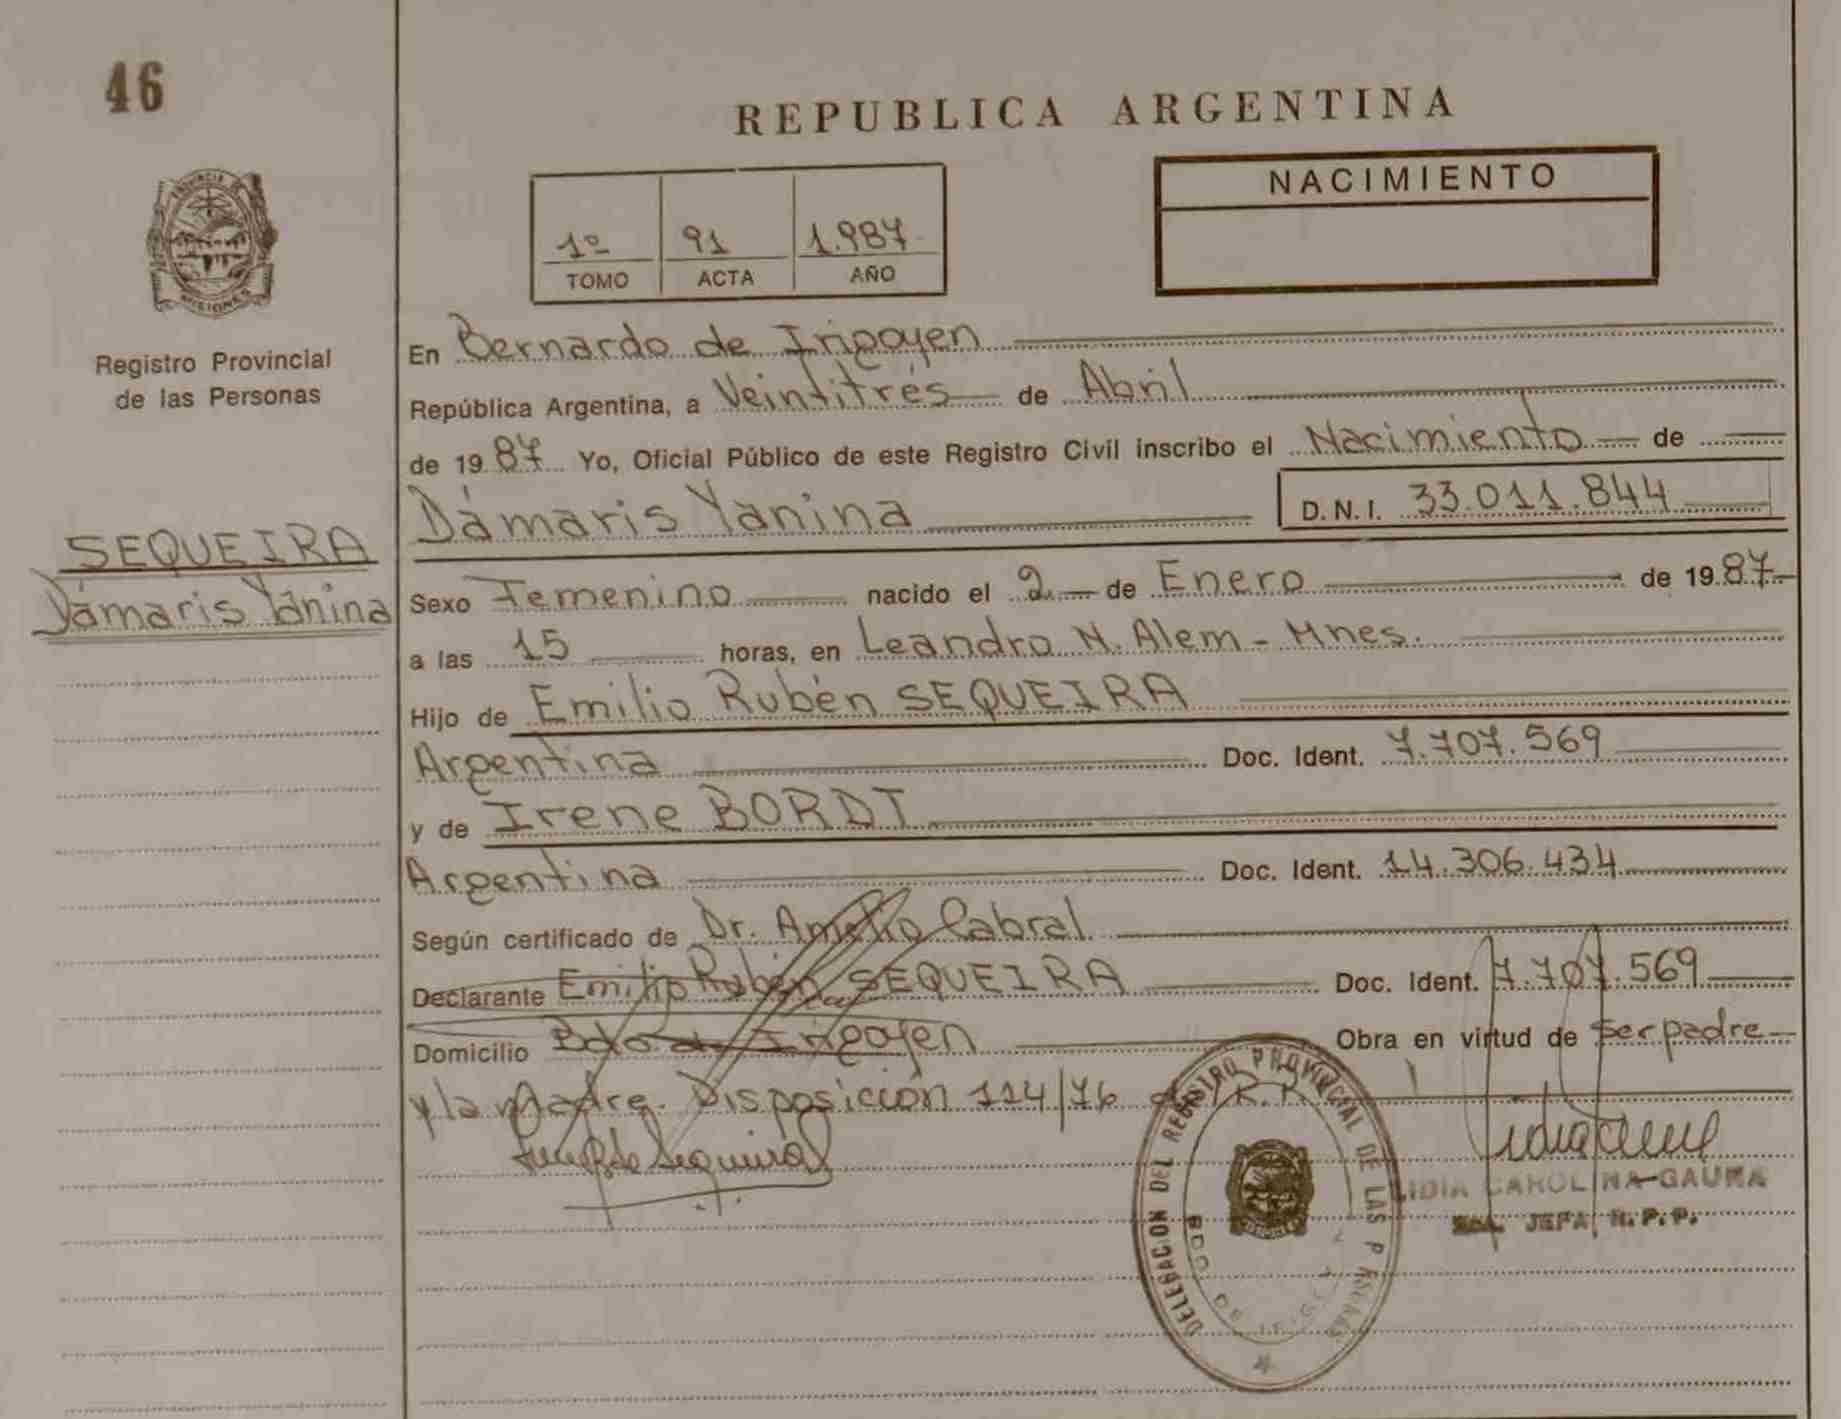 46
REPUBLICA ARGENTINA
NACIMIENTO
1º 91 1.987
TOMO ACTA AÑO
PROVINCIA DE
MISIONES
Registro Provincial
de las Personas
SEQUEIRA
Dámaris Yanina
En Bernardo de Irigoyen
República Argentina, a Veintitrés de Abril
de 1987 Yo, Oficial Público de este Registro Civil inscribo el Nacimiento de
Dámaris Yanina D.N.I. 33.011.844
Sexo Femenino nacido el 2 de Enero de 1987
a las 15 horas, en Leandro N. Alem - Mnes.
Hijo de Emilio Rubén SEQUEIRA
Argentina Doc. Ident. 7.707.569
y de Irene BORDT
Argentina Doc. Ident. 14.306.434
Según certificado de Dr. Amelio Cabral
Declarante Emilio Rubén SEQUEIRA Doc. Ident. 7.707.569
Domicilio Bdo de Irigoyen Obra en virtud de ser padre
y la Madre. Disposición 114/76
de Sequeira
DELEGACION DEL REGISTRO PROVINCIAL DE LAS PERSONAS
BDO. DE
LIDIA CAROLINA GAUNA
JEFA R.P.P.